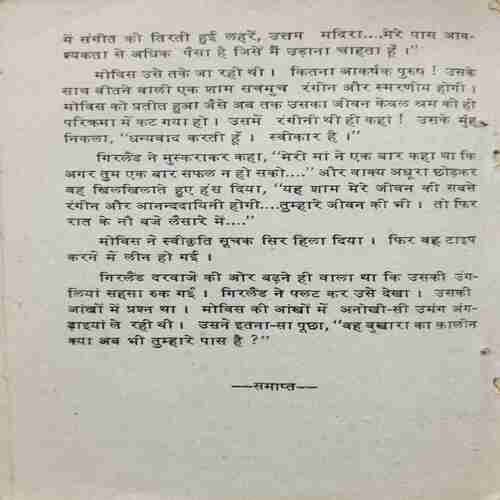 में संगीत की तिरती हुई लहरें, उत्तम मदिरा....मेरे पास आव-
श्यकता से अधिक पैसा है जिसे मैं उड़ाना चाहता हूँ ।"
मोविस उसे तके जा रही थी । कितना आकर्षक पुरुष ! उसके
साथ बीतने वाली एक शाम सचमुच रंगीन और स्मरणीय होगी ।
मोविस को प्रतीत हुआ जैसे अब तक उसका जीवन केवल श्रम की ही
परिक्रमा में कट गया हो । उसमें रंगीनी थी ही कहां ! उसके मुंह
निकला, "धन्यवाद करती हूँ । स्वीकार है ।"
गिरलैंड ने मुस्कराकर कहा, "मेरी मां ने एक बार कहा था कि
अगर तुम एक बार सफल न हो सको...." और वाक्य अधूरा छोड़कर
वह खिलखिलाते हुए हंस दिया, "यह शाम मेरे जीवन की सबसे
रंगीन और आनन्ददायिनी होगी....तुम्हारे जीवन की भी । तो फिर
रात के नौ बजे लैसारे में...."
मोविस ने स्वीकृति सूचक सिर हिला दिया । फिर वह टाइप
करने में लीन हो गई ।
गिरलैंड दरवाजे की ओर बढ़ने ही वाला था कि उसकी उंग-
लियां सहसा रुक गईं । गिरलैंड ने पलट कर उसे देखा । उसकी
आंखों में प्रश्न था । मोविस की आंखों में अनोखी-सी उमंग अंग-
ड़ाइयां ले रही थी । उसने इतना-सा पूछा, "वह बुखारा का कालीन
क्या अब भी तुम्हारे पास है ?"
—समाप्त—